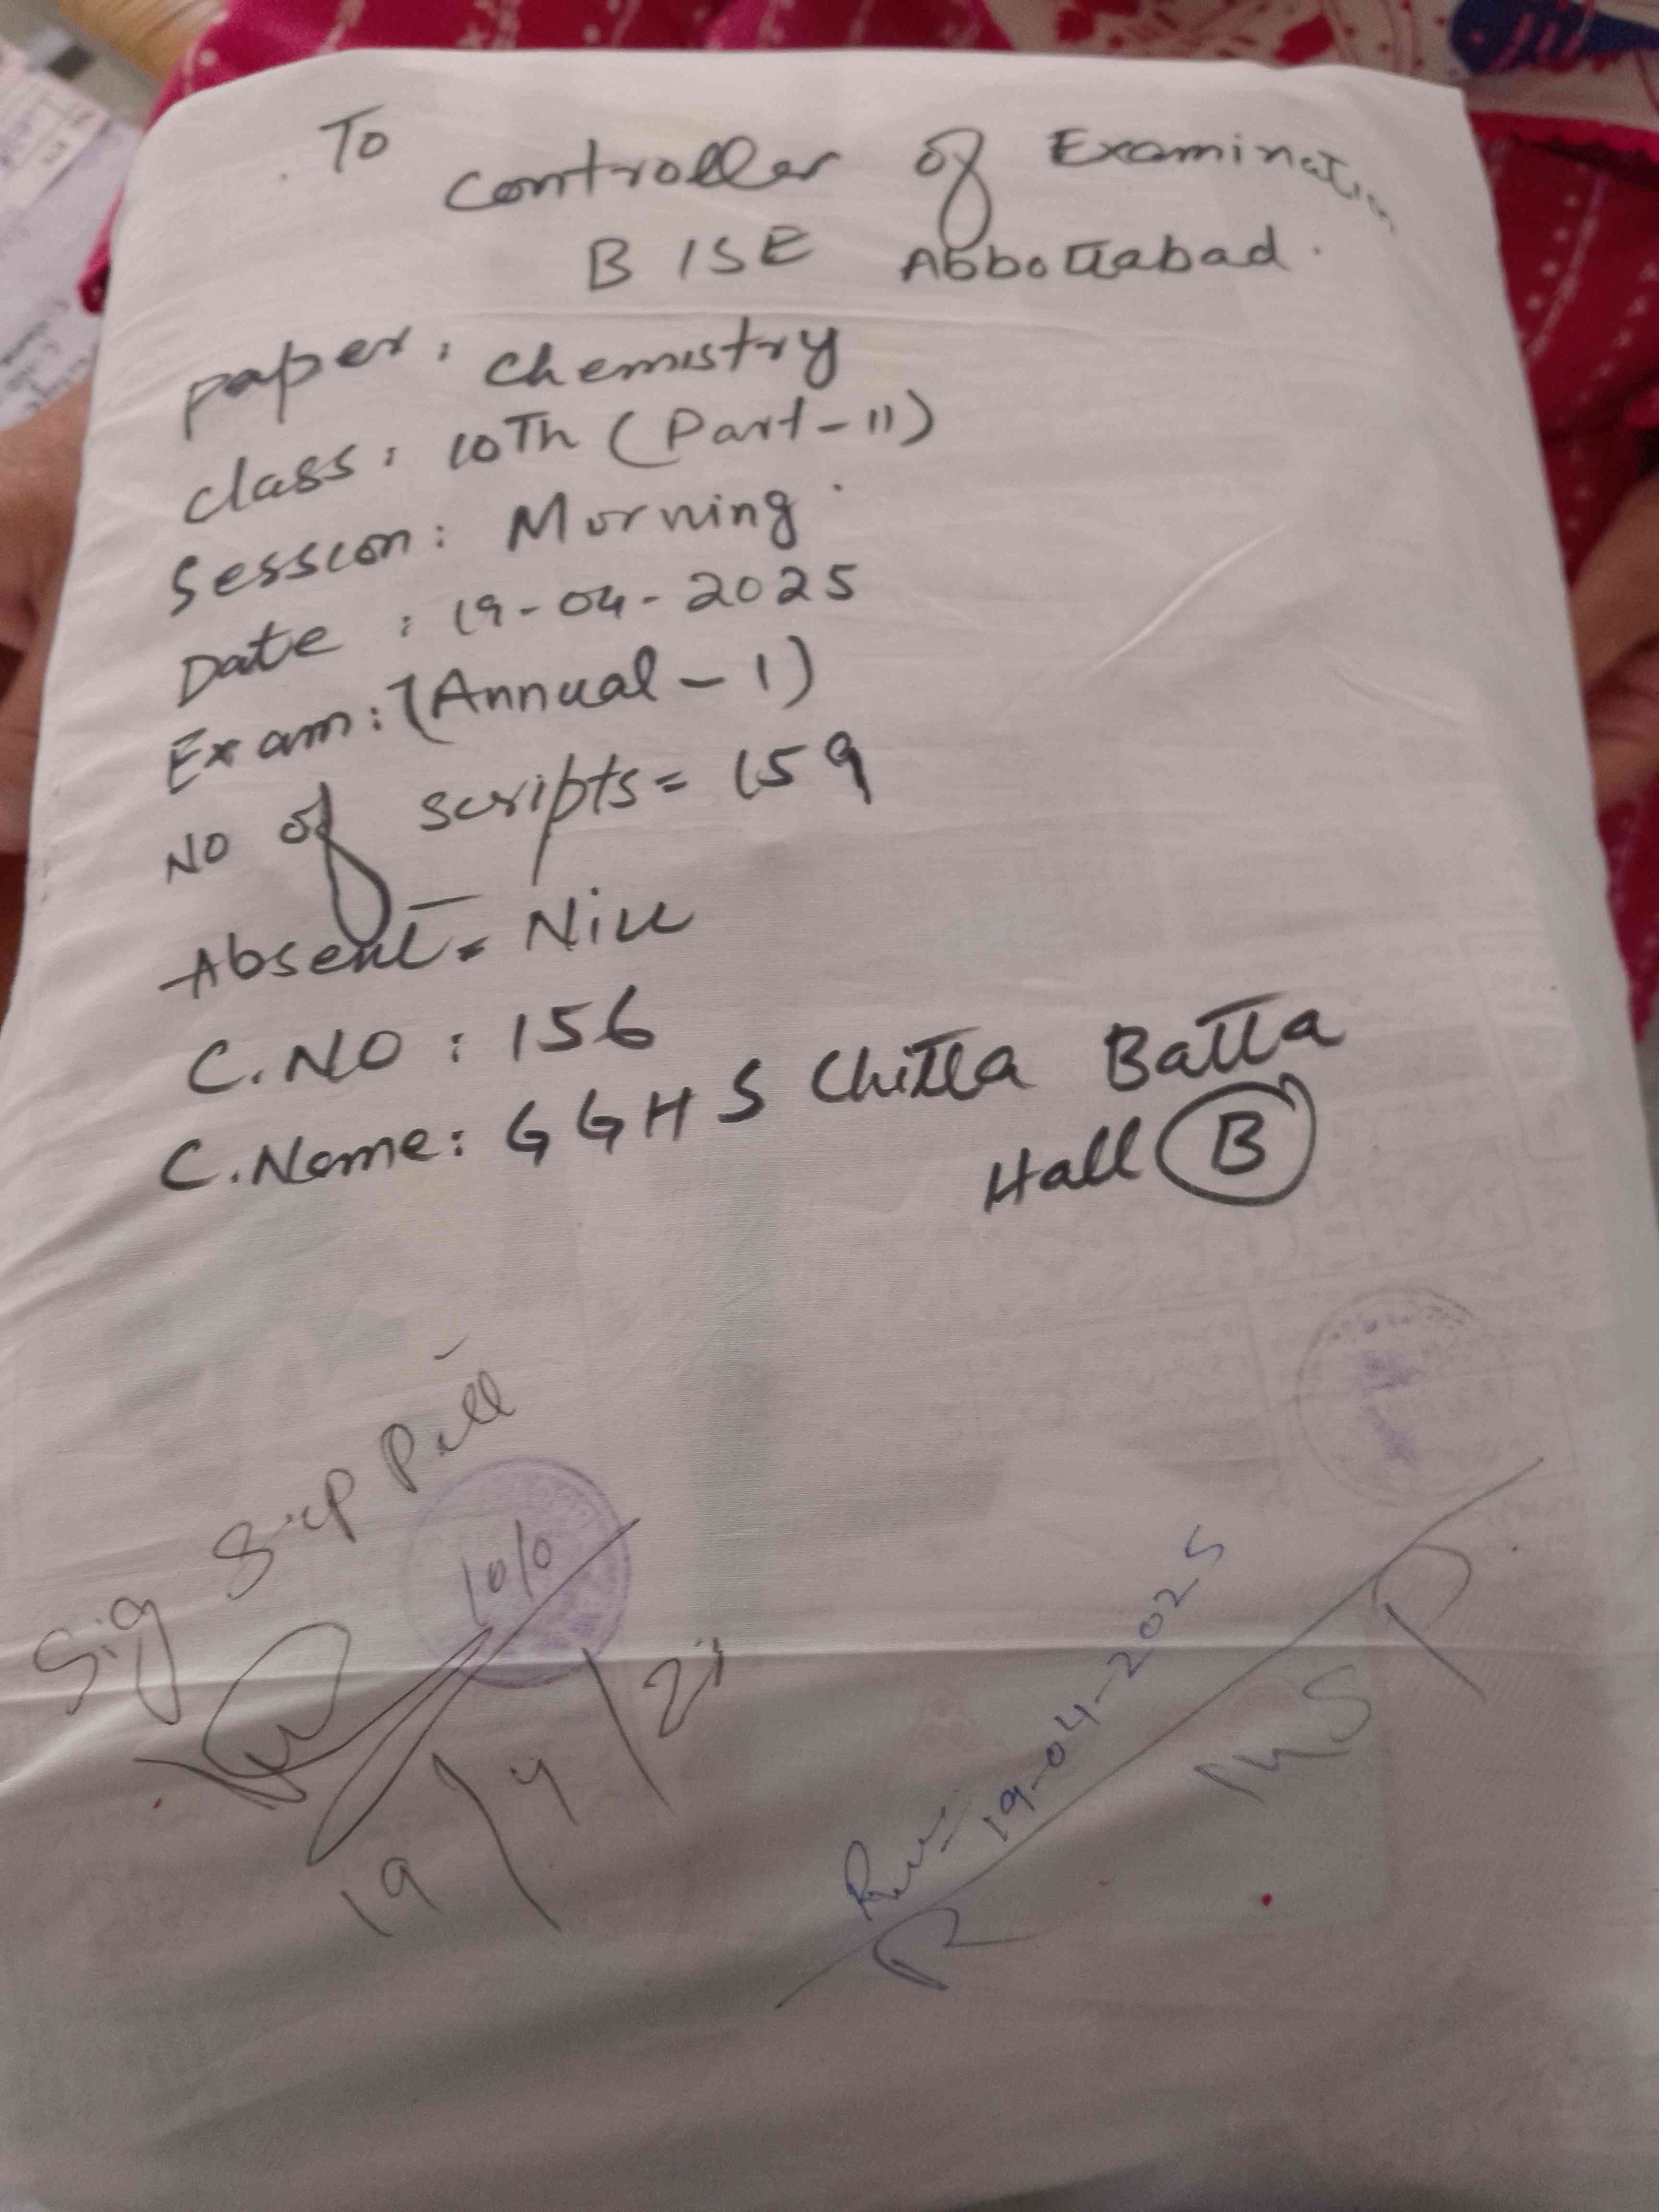 To
Controller of Examination
BISE Abbottabad.
paper: Chemistry
class: 10Th (Part-II)
Session: Morning
Date: 19-04-2025
Exam: (Annual-1)
NO of scripts = 159
Absent = Nill
C.NO: 156
C.Name: GGHS Chitta Batta
Hall B
Sig
19/4/25
19-04-2025